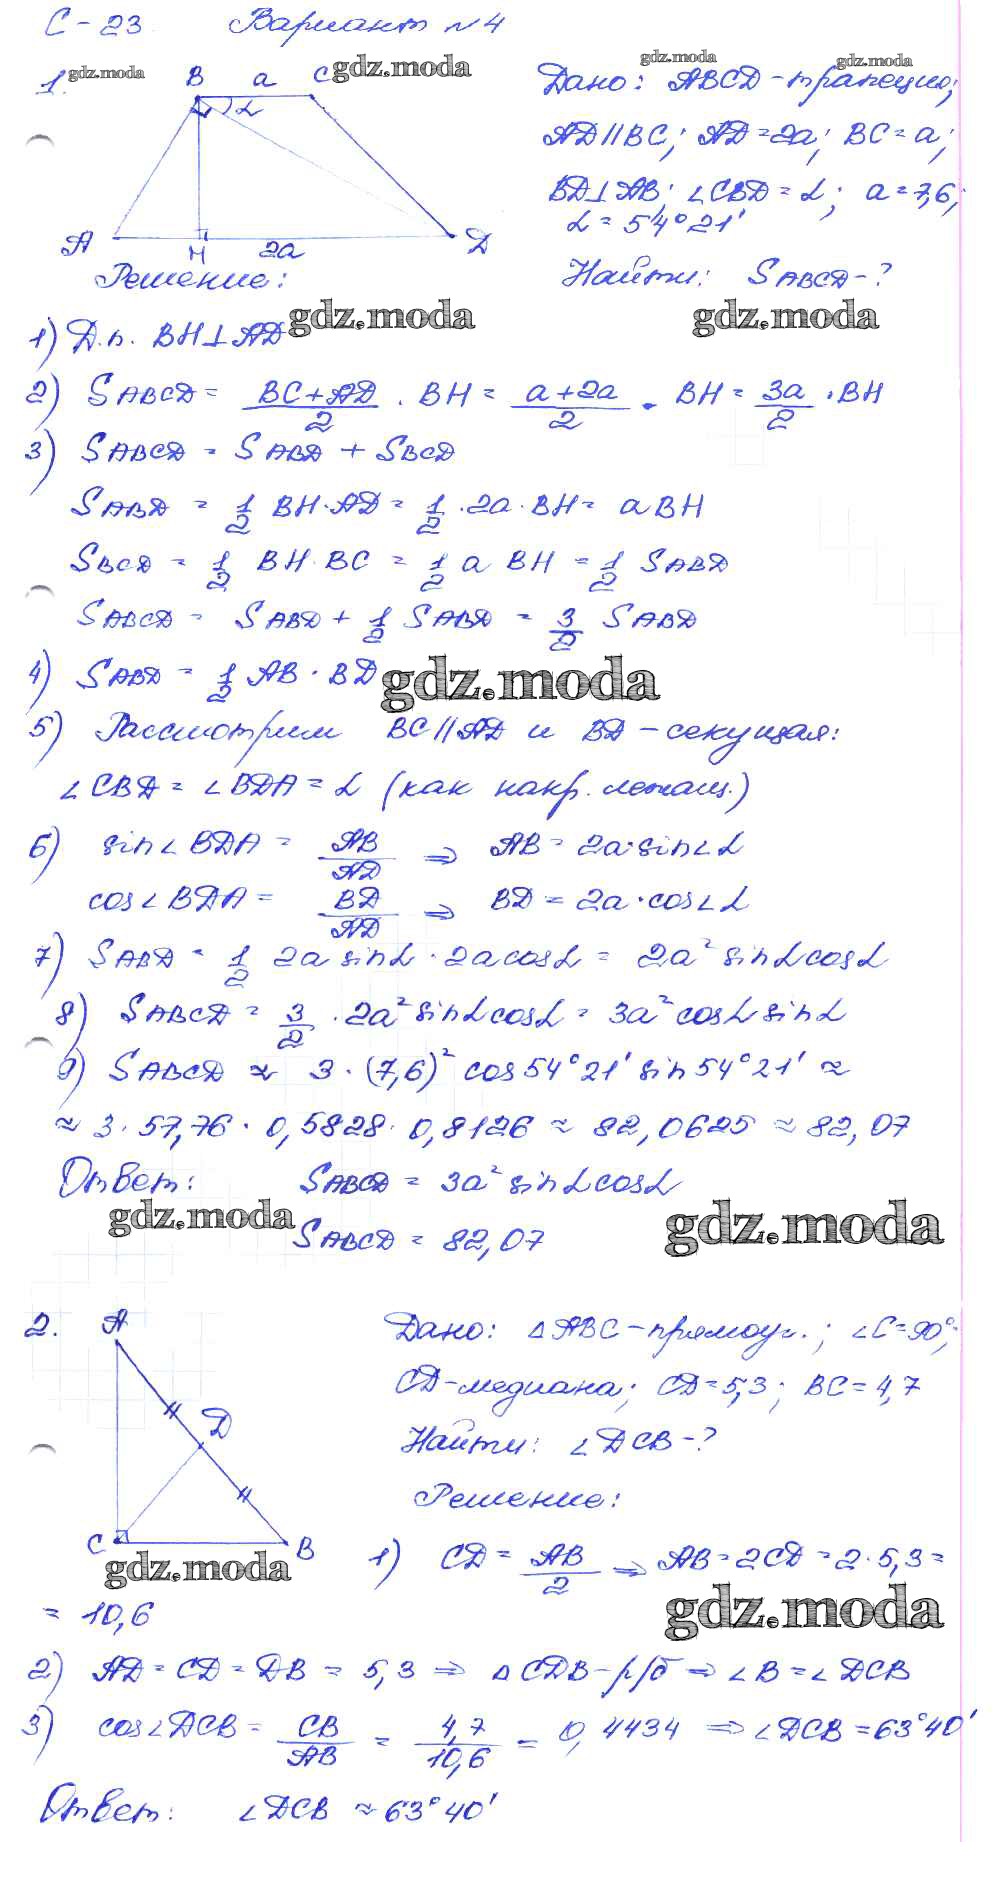 С-23 Вариант №4
1. gdz.moda B a C gdz.moda gdz.moda gdz.moda
Дано: ABCD-трапеция;
AD||BC; AD=2a; BC=a;
BD⊥AB; ∠CBD=α; a=7,6;
α=54°21'
Найти: SABCD-?
α
A H 2a D
Решение:
gdz.moda gdz.moda
1) Д.п. BH⊥AD
2) SABCD = (BC+AD)/2 · BH = (a+2a)/2 · BH = 3a/2 · BH
3) SABCD = SABD + SBCD
SABD = 1/2 BH·AD = 1/2 · 2a · BH = a BH
SBCD = 1/2 BH·BC = 1/2 a BH = 1/2 SABD
SABCD = SABD + 1/2 SABD = 3/2 SABD
4) SABD = 1/2 AB · BD gdz.moda
5) Рассмотрим BC||AD и BD-секущая:
∠CBD = ∠BDA = α (как накр. лежащ.)
6) sin∠BDA = AB/AD ⇒ AB = 2a·sin∠α
cos∠BDA = BD/AD ⇒ BD = 2a·cos∠α
7) SABD = 1/2 2a sinα · 2a cosα = 2a² sinα cosα
8) SABCD = 3/2 · 2a² sinα cosα = 3a² cosα sinα
9) SABCD ≈ 3 · (7,6)² cos54°21' sin54°21' ≈
≈ 3 · 57,76 · 0,5828 · 0,8126 ≈ 82,0625 ≈ 82,07
Ответ: SABCD = 3a² sinα cosα
gdz.moda gdz.moda
SABCD = 82,07
2. A
Дано: △ABC-прямоуг.; ∠C=90°;
CD-медиана; CD=5,3; BC=4,7
D
Найти: ∠DCB-?
Решение:
C B
gdz.moda
1) CD = AB/2 ⇒ AB = 2CD = 2·5,3 =
= 10,6
gdz.moda
2) AD = CD = DB = 5,3 ⇒ △CDB-р/б ⇒ ∠B = ∠DCB
3) cos∠DCB = CB/AB = 4,7/10,6 = 0,4434 ⇒ ∠DCB = 63°40'
Ответ: ∠DCB ≈ 63°40'